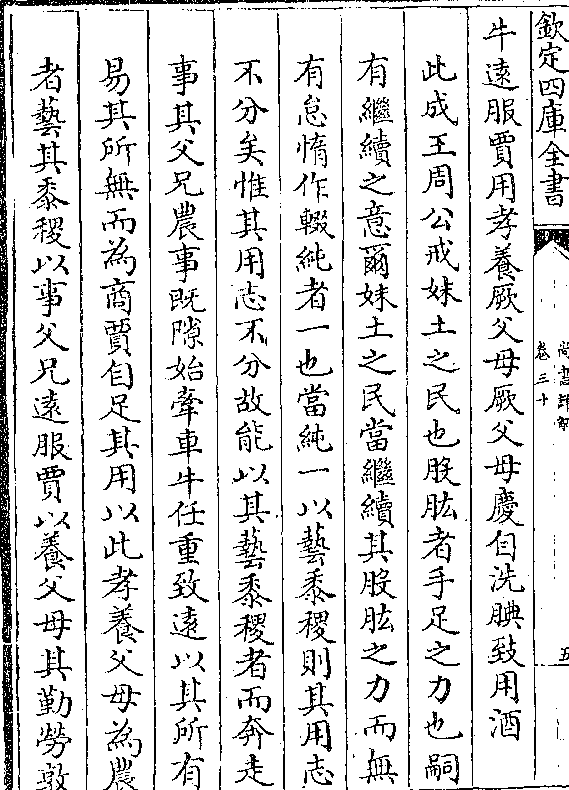 欽定四庫全書
尚書詳解
卷三十
五
牛遠服賈用孝養厥父母厥父母慶自洗腆致用酒
此成王周公戒妹土之民也股肱者手足之力也嗣
有繼續之意爾妹土之民當繼續其股肱之力而無
有怠惰作輟純者一也當純一以藝黍稷則其用志
不分矣惟其用志不分故能以其藝黍稷者而奔走
事其父兄農事既隙始牽車牛任重致遠以其所有
易其所無而為商賈自足其用以此孝養父母為農
者藝其黍稷以事父兄遠服賈以養父母其勤勞敦